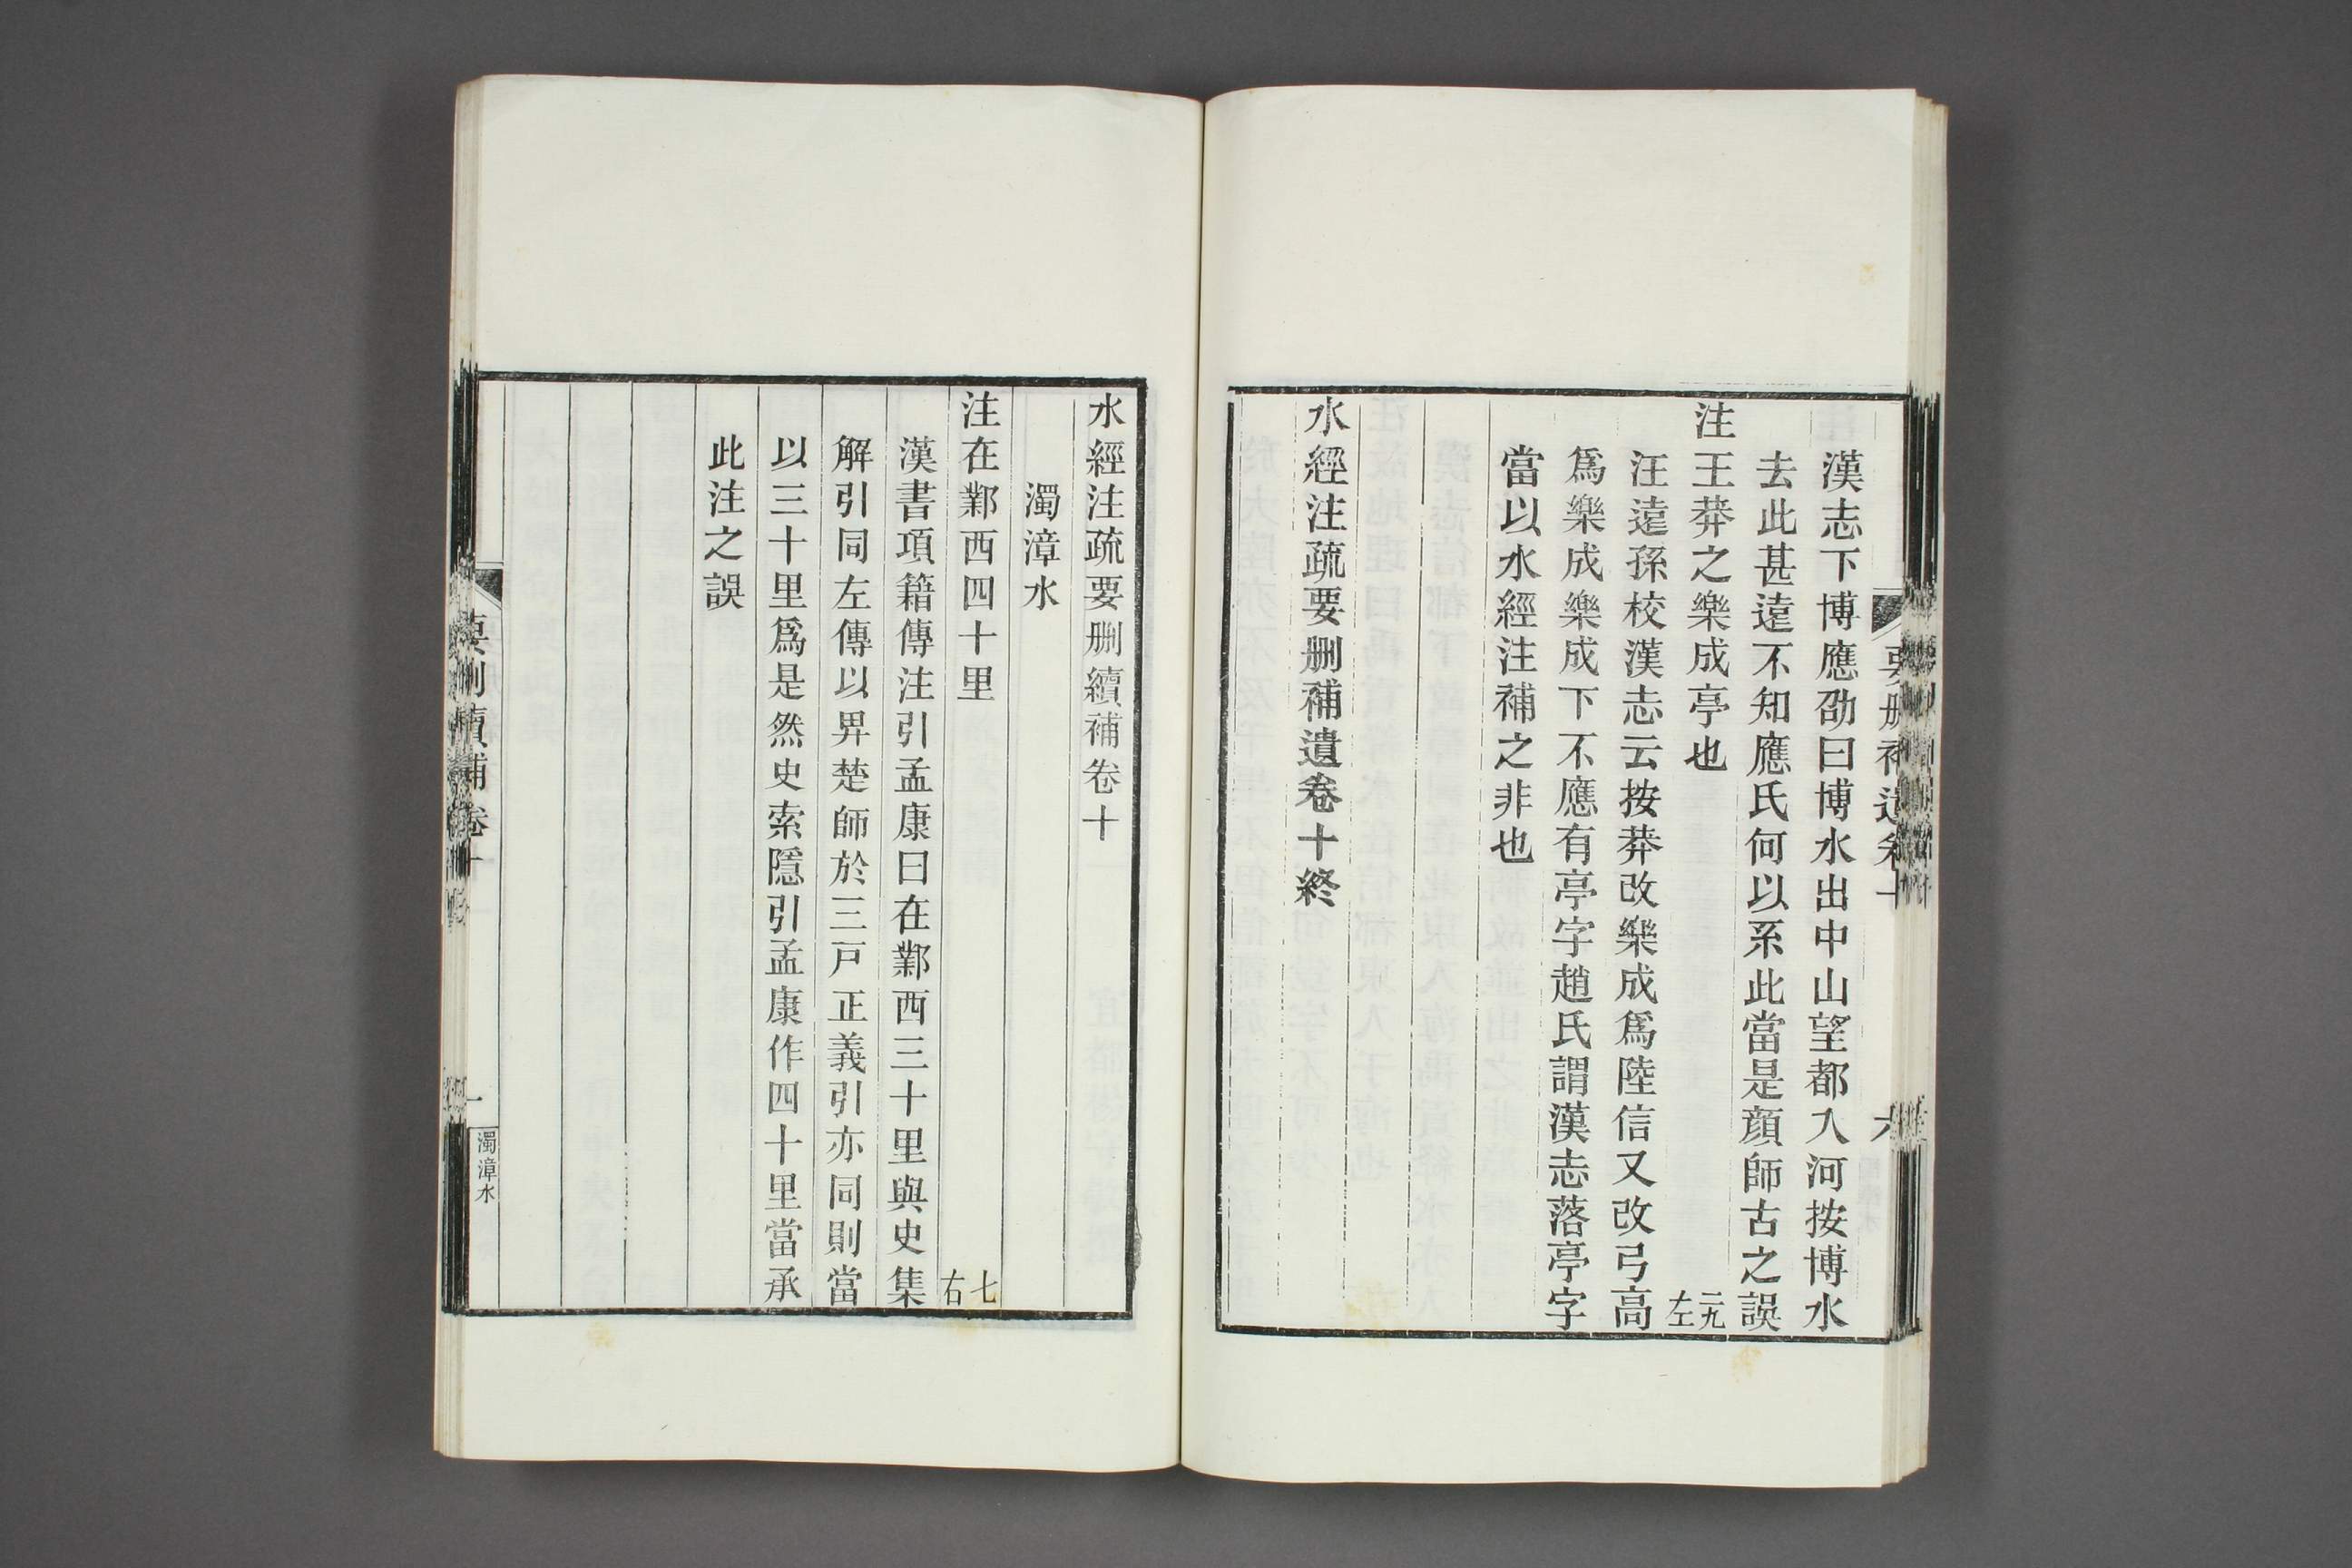 漢志下博應劭曰博水出中山望都入河按博水
去此甚遠不知應氏何以系此當是顏師古之誤
注王莽之樂成亭也 二九左
汪遠孫校漢志云按莽改樂成爲陸信又改弓高
爲樂成樂成下不應有亭字趙氏謂漢志落亭字
當以水經注補之非也
水經注疏要刪補遺卷十終
水經注疏要刪續補卷十
濁漳水
注在鄴西四十里 七右
漢書項籍傳注引孟康曰在鄴西三十里與史集
解引同左傳以畀楚師於三戸正義引亦同則當
以三十里爲是然史索隱引孟康作四十里當承
此注之誤
要刪續補卷十
一
濁漳水